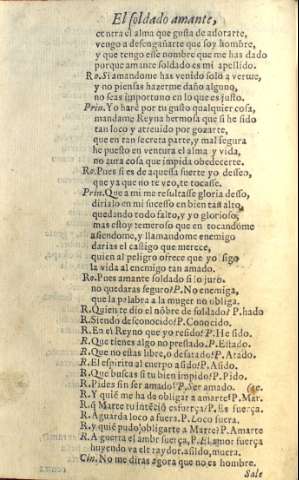 El soldado amante,
contra el alma que gusta de adorarte,
vengo a desengañarte que soy hombre,
y que tengo esse nombre que me has dado
porque amante soldado es mi apellido.
Ro. Si amandome has venido solo a verme,
y no piensas hazerme daño alguno,
no seas importuno en lo que es justo.
Prin. Yo haré por tu gusto qualquier cosa,
mandame Reyna hermosa que si he sido
tan loco y atreuido por gozarte,
que en tan secreta parte, y mal segura
he puesto en ventura el alma y vida,
no aura cosa que impida obedecerte.
Ro. Pues si es de aquessa fuerte yo desseo,
que ya que no te veo, te tocasse.
Prin. Que a mi me resultasse gloria desso,
dirialo en mi sucesso en bien tan alto,
quedando todo falto, y yo glorioso,
mas estoy temeroso que en tocandome
asiendome, y llamandome enemigo
darias el castigo que merece,
quien al peligro ofrece que yo sigo
la vida al enemigo tan amado.
Ro. Pues amante soldado si lo juro
no quedaras seguro? P. No enemiga,
que la palabra a la muger no obliga.
R. Quien te dio el nõbre de soldado? P. hado
R. Siendo desconocido? P. Conocido.
R. En el Reyno que yo resido? P. He sido.
R. Que tienes algo no prestado. P. Estado.
R. Que no estas libre, o desatado? P. Atado.
R. El espiritu al cuerpo asido? P. Asido.
R. Que buscas si tu bien impido? P. Pido.
R. Pides sin ser amado? P. Ser amado.
R. Y quié me ha de obligar a amarte? P. Mar.
R. q̃ Marte tu intéció esfuerça? P. Es fuerça.
R. Aguarda loco a fuera. P. Loco fuera.
R. y quié pudo obligarte a Marte? P. Amarte
R. A guerra el ambr fuerça, P. El amor fuerça
huyendo va ele traydor. asildo, muera.
Cin. No me diras agora que no es hombre.
Sale